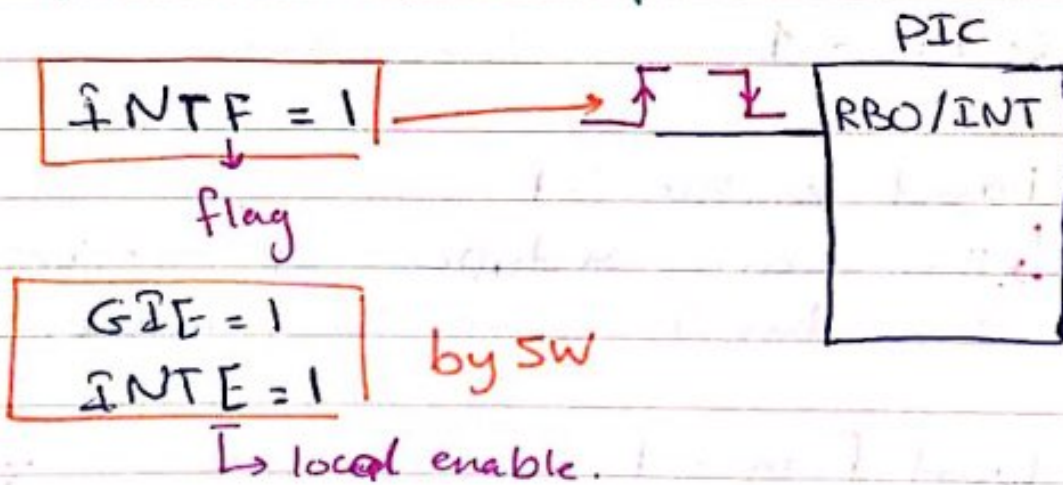 PIC
INTF = 1
RB0/INT
flag
GIE = 1
INTE = 1
by SW
↳ local enable.